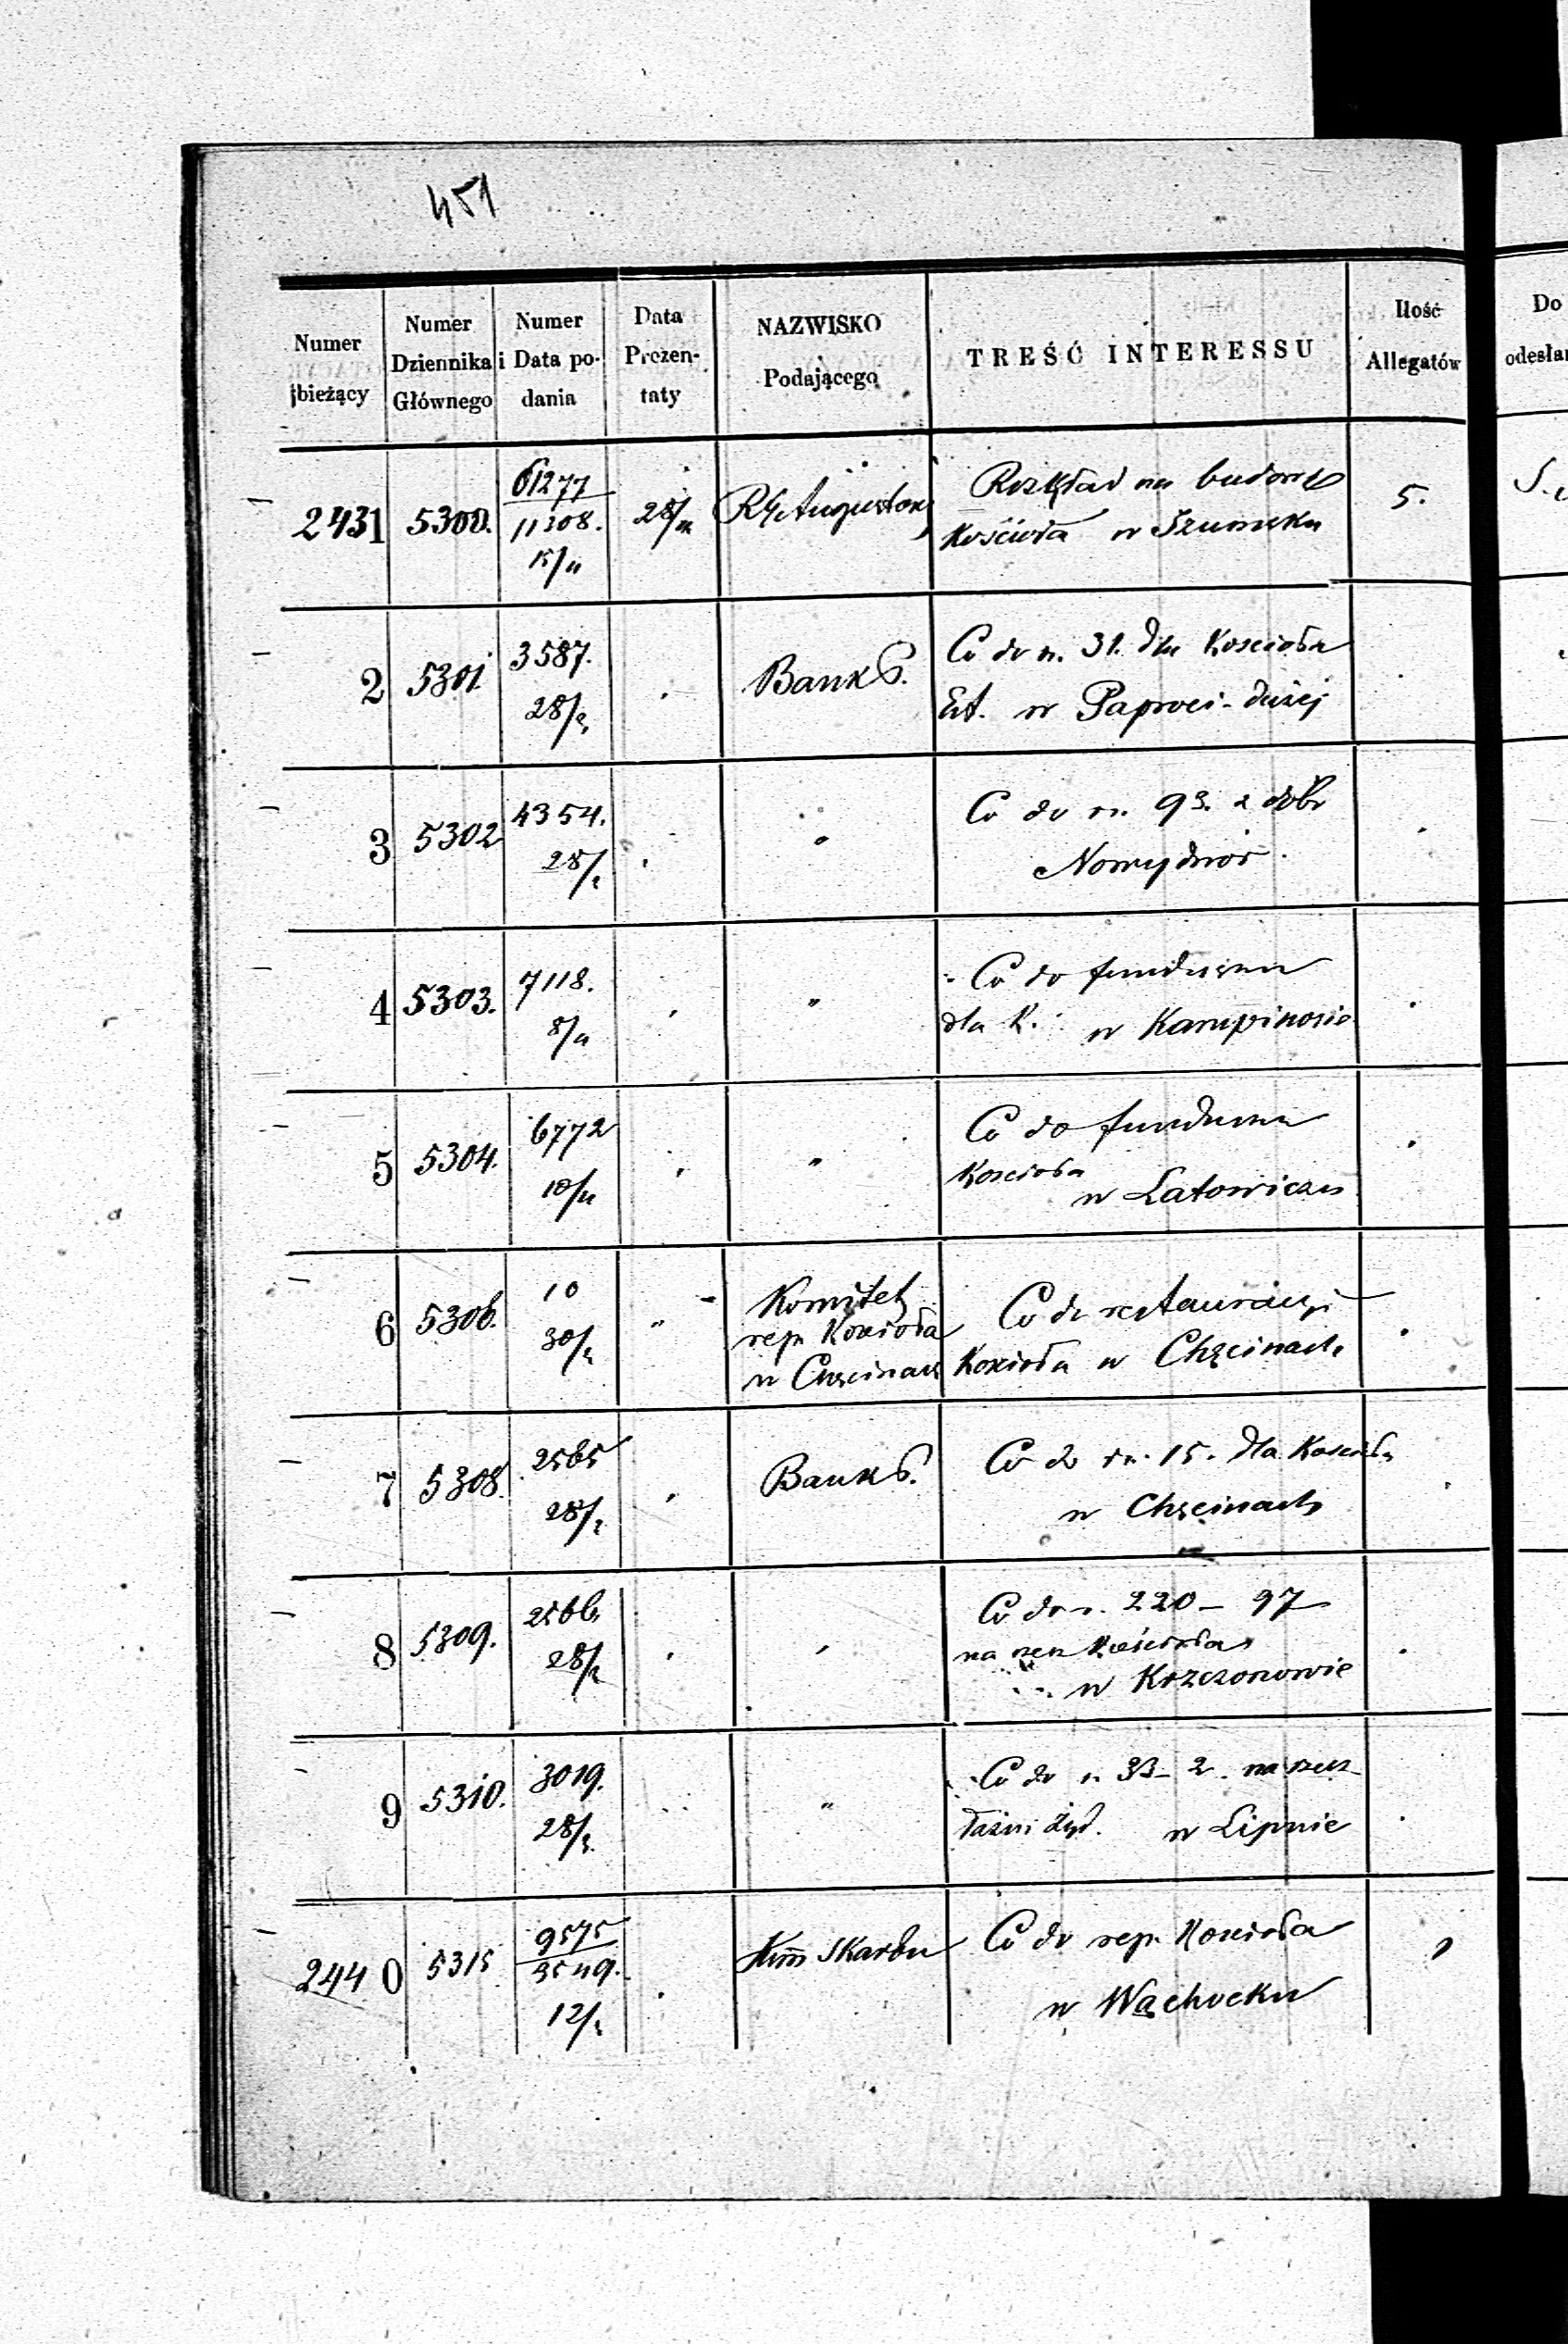 451
Numer bieżący
Numer Dziennika Głównego
Numer i Data podania
Data Prezentaty
NAZWISKO Podającego
TREŚĆ INTERESSU
Ilość Allegatów
Do
odesła
2431 5300. 61277 28/ RG Augustow Rozkład na budowę 5.
11308. Kościoła w Szumsku
15/11
2 5301 3587. Bank P. Co do rs. 31. dla Kościoła
28/2 Ew. w Paproci-dużej
3 5302 4354. " Co do rs. 93. z dóbr
28/2 Nowydwór
4 5303. 7118. " Co do funduszu
8/11 dla K. w Kampinosie
5 5304. 6772 " Co do funduszu
10/11 Kościoła
w Latowiczu
6 5306. 10 " Komitet Co do restauracyi
30/ rep. Kościoła
w Chęcinach Kościoła w Chęcinach
7 5308 2565 Bank P. Co do rs. 15. dla Kościoła
28/2 w Chęcinach
8 5309. 2566. Co do rs. 220 - 97
28/2 na rzecz Kościoła
w Krzczonowie
9 5310. 3019. " Co do rs. 33-2. na rzecz
28/2 łaźni żyd. w Lipnie
2440 5315 9575 Kom Skarbu Co do rep. Kościoła
3549.
12/ w Wąchocku